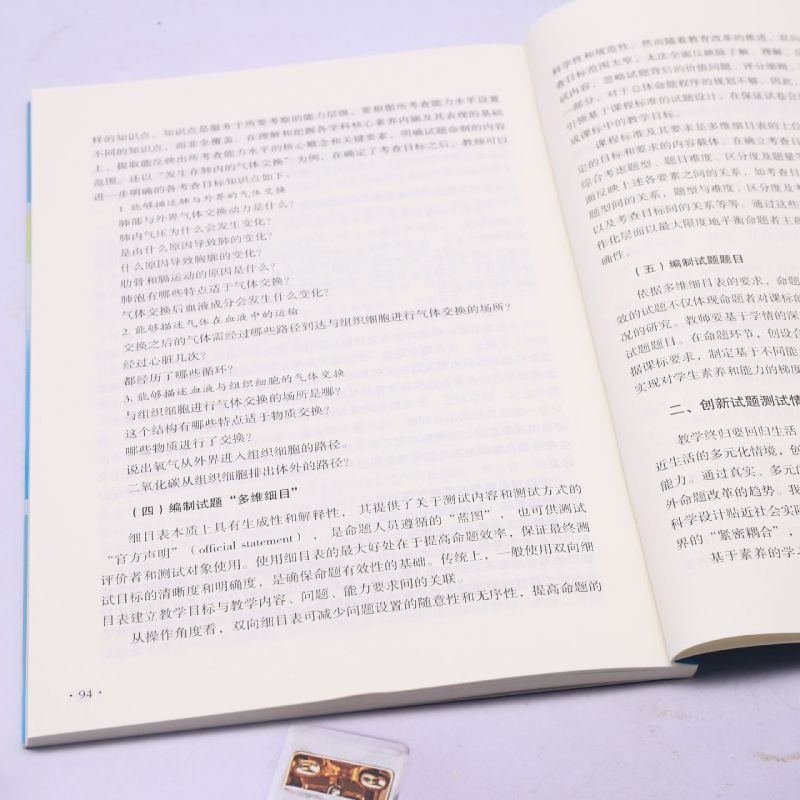 样的知识点。知识点是服务于所要考察的能力层级，要根据所考查能力水平设置
不同的知识点，而非全覆盖。在理解和把握各学科核心素养内涵及其表现的基础
上，提取能反映出所考查能力水平的核心概念和关键要素，明确试题命制的内容
范围。还以“发生在肺内的气体交换”为例，在确定了考查目标之后，教师可以
进一步明确的各考查目标知识点如下：
1. 能够描述肺与外界的气体交换
肺部与外界气体交换动力是什么？
肺内气压为什么会发生变化？
是由什么原因导致肺的变化？
什么原因导致胸廓的变化？
肋骨和膈运动的原因是什么？
肺泡有哪些特点适于气体交换？
气体交换后血液成分会发生什么变化？
2. 能够描述气体在血液中的运输
交换之后的气体需经过哪些路径到达与组织细胞进行气体交换的场所？
经过心脏几次？
都经历了哪些循环？
3. 能够描述血液与组织细胞的气体交换
与组织细胞进行气体交换的场所是哪？
这个结构有哪些特点适于物质交换？
哪些物质进行了交换？
说出氧气从外界进入组织细胞的路径。
二氧化碳从组织细胞排出体外的路径？
（四）编制试题“多维细目”
细目表本质上具有生成性和解释性，其提供了关于测试内容和测试方式的
“官方声明”（official statement），是命题人员遵循的“蓝图”，也可供测试
评价者和测试对象使用。使用细目表的最大好处在于提高命题效率，保证最终测
试目标的清晰度和明确度，是确保命题有效性的基础。传统上，一般使用双向细
目表建立教学目标与教学内容、问题、能力要求间的关联。
从操作角度看，双向细目表可减少问题设置的随意性和无序性，提高命题的
· 94 ·
科学性和规范性。然而随着教育改革的推进，双向
查目标范围太窄，无法全面反映除了解、理解、
试内容，忽略试题背后的价值问题、评分细则、
一部分，对于总体命题程序的规划不够。因此，
引领基于课程标准的试题设计，在保证试卷合
成课标中的教学目标。
课程标准及其要求是多维细目表的上位
定的目标和要求的内容载体。在确立考查目
综合考虑题型、题目难度、区分度及题量
面反映上述各要素之间的关系，如考查目
题型间的关系，题型与难度、区分度及
以及考查目标间的关系等等。通过这些
作化层面以最大限度地平衡命题者主
确性。
（五）编制试题题目
依据多维细目表的要求，命题
效的试题不仅体现命题者对课标的
况的研究。教师要基于学情的深
试题题目。在命题环节，创设合
据课标要求，制定基于不同能
实现对学生素养和能力的梯度
二、创新试题测试情
教学终归要回归生活
近生活的多元化情境，创
能力。通过真实、多元的
外命题改革的趋势。我
科学设计贴近社会实际
界的“紧密耦合”，
基于素养的学